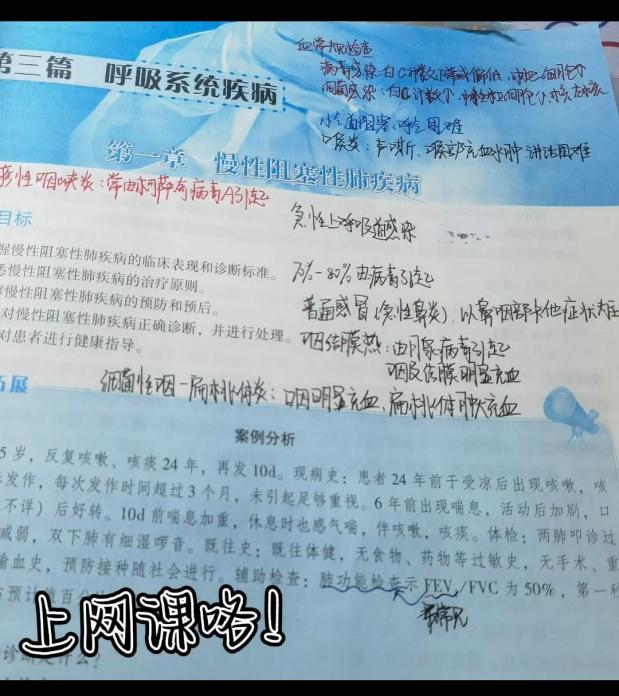 血常规检查
病毒感染:白C计数↓常或偏低,淋巴细胞↑
细菌感染:白C计数↑,中性粒细胞↑,核左移
第三篇 呼吸系统疾病
小气道阻塞:呼吸困难
喉炎:声嘶,喉部充血水肿 讲话困难
第一章 慢性阻塞性肺疾病
疱疹性咽峡炎:常由柯萨奇病毒A引起
目标
急性上呼吸道感染
握慢性阻塞性肺疾病的临床表现和诊断标准。
70%-80%由病毒引起
悉慢性阻塞性肺疾病的治疗原则。
慢性阻塞性肺疾病的预防和预后。
普通感冒(急性鼻炎),以鼻咽部卡他症状为主
对慢性阻塞性肺疾病正确诊断,并进行处理。
对患者进行健康指导。
咽结膜热:由腺病毒引起
咽及结膜明显充血
拓展
细菌性咽-扁桃体炎:咽明显充血,扁桃体肿大充血
案例分析
5岁,反复咳嗽、咳痰24年,再发10d。现病史:患者24年前于受凉后出现咳嗽,咳
发作,每次发作时间超过3个月,未引起足够重视。6年前出现喘息,活动后加剧,口
不详)后好转。10d前喘息加重,休息时也感气喘,伴咳嗽,咳痰。体检:两肺叩诊过
减弱,双下肺有细湿啰音。既往史:既往体健,无食物、药物等过敏史,无手术、重
输血史,预防接种随社会进行。辅助检查:肺功能检查示FEV₁/FVC为50%,第一秒
占预计值百分
上网课咯!
诊断是什么?